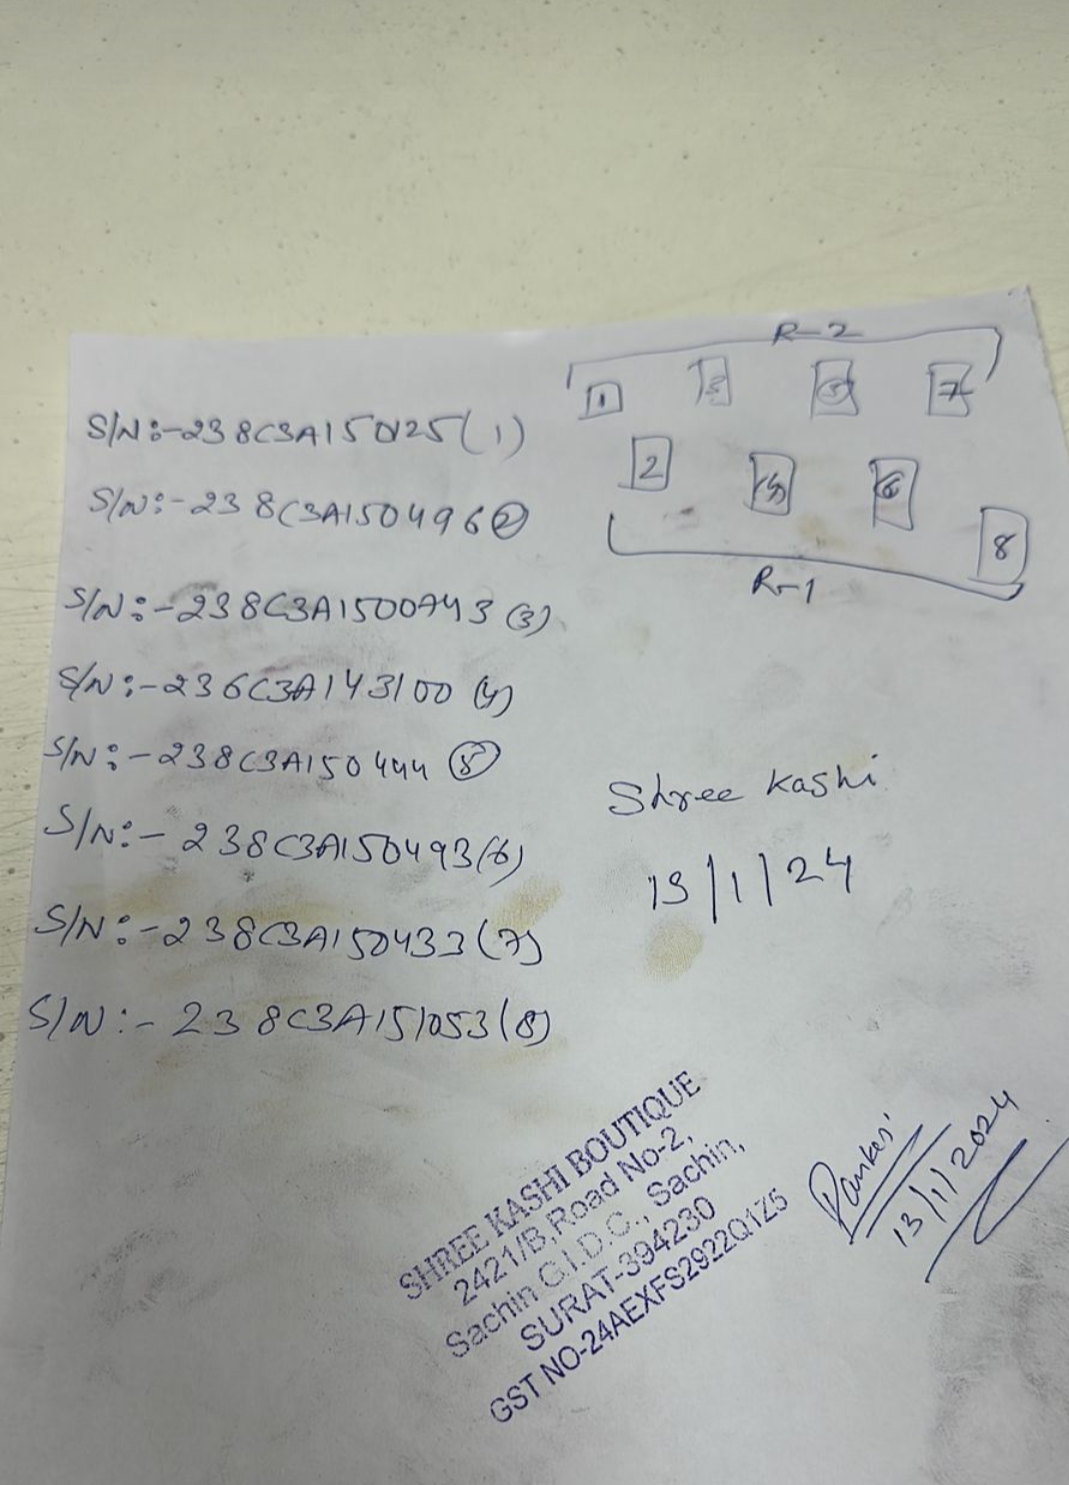 R-2
1 3 5 7
S/N:-238C3A150125(1)
2 4 6
S/N:-238C3A150496(2)
8
R-1
S/N:-238C3A1500743(3)
S/N:-236C3A143100(4)
S/N:-238C3A150444(5)
Shree Kashi
S/N:-238C3A150493(6)
13/1/24
S/N:-238C3A150433(7)
S/N:-238C3A151053(8)
SHREE KASHI BOUTIQUE
2421/B,Road No-2,
Sachin G.I.D.C., Sachin,
SURAT-394230
GST NO-24AEXFS2922Q1Z5
13/1/2024